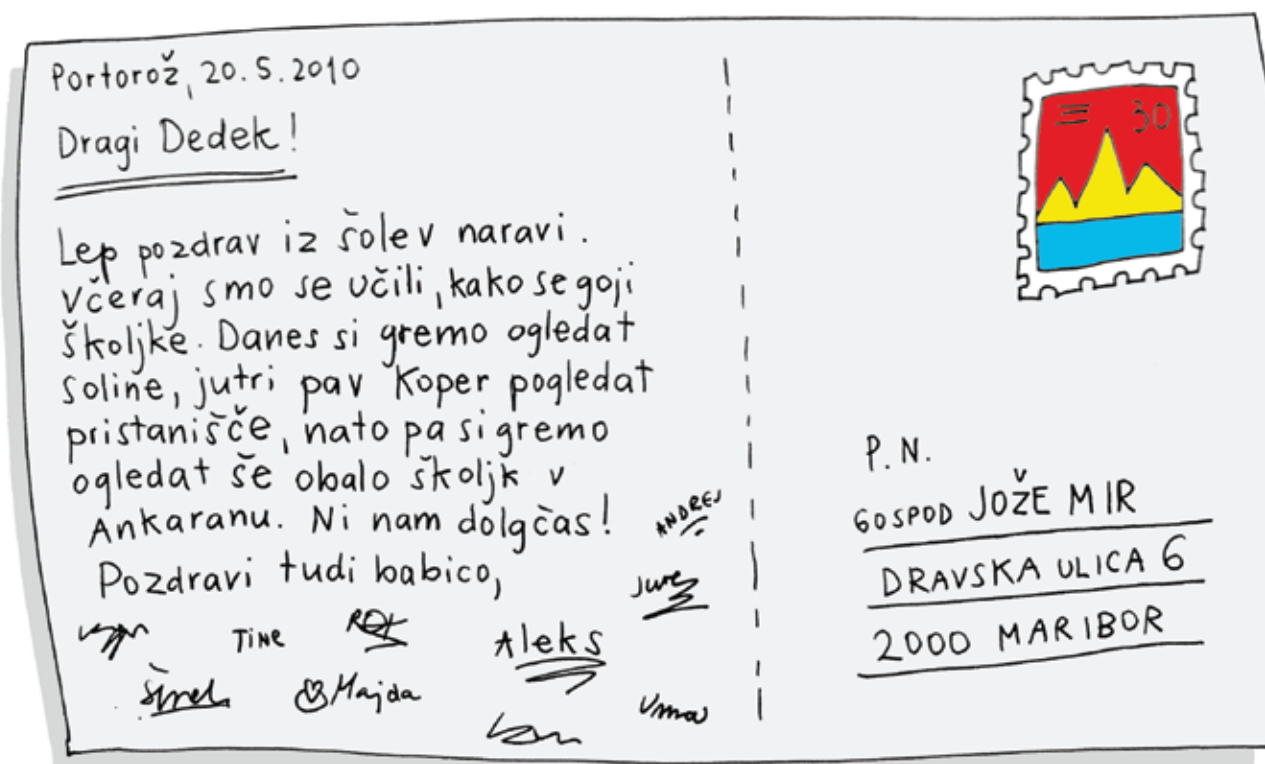 Portorož, 20.5.2010
Dragi Dedek!
Lep pozdrav iz šole v naravi.
Včeraj smo se učili, kako se goji
školjke. Danes si gremo ogledat
soline, jutri pa v Koper pogledat
pristanišče, nato pa si gremo
ogledat še obalo školjk v
Ankaranu. Ni nam dolgčas!
Pozdravi tudi babico,
ANDREJ
Jure
TINE
ROK
Aleks
Majda
30
P.N.
GOSPOD JOŽE MIR
DRAVSKA ULICA 6
2000 MARIBOR